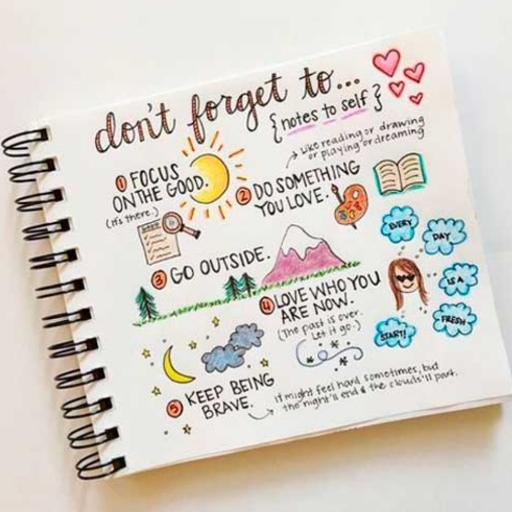 don't forget to...
{notes to self}
① FOCUS
ON THE GOOD.
(it's there.)
② DO SOMETHING
YOU LOVE.
Like reading or drawing
or playing or dreaming
③ GO OUTSIDE.
④ LOVE WHO YOU
ARE NOW.
(The past is over.
Let it go.)
EVERY
DAY
IS A
FRESH
START!
⑤ KEEP BEING
BRAVE.
it might feel hard sometimes, but
the night'll end & the clouds'll part.